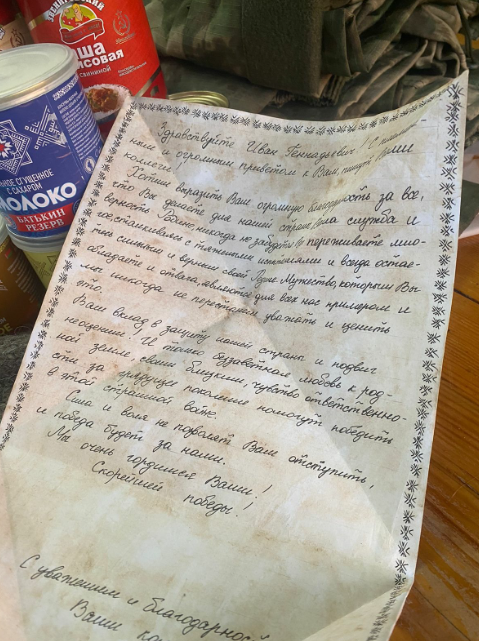 ГЕНИЧЕСКИЙ
Каша
рисовая
со свининой
МОЛОКО
ЦЕЛЬНОЕ СГУЩЕННОЕ
С САХАРОМ
БАТЬКИН
РЕЗЕРВ
Здравствуйте Иван Геннадьевич! С
ним и огромным приветом к Вам пишут Ваши
коллеги.
Хотим выразить Вам огромную благодарность за все,
что Вы делаете для нашей страны. Ваша служба и
верность Родине, никогда не забудут. Вы переживаете мно-
сталкиваясь с тяжелыми испытаниями и всегда остае-
тесь сильными и верными своей Родине. Мужество, которым Вы
обладаете и отвага, являются для всех нас примером и
мы никогда не перестанем уважать и ценить
это.
Ваш вклад в защиту нашей страны и подвиг
неоценим. И только беззаветная любовь к род-
ной земле, своим близким, чувство ответственно-
сти за грядущее поколение помогут победить
в этой страшной войне.
Сила и воля не позволят Вам отступить,
и победа будет за нами.
Мы очень гордимся Вами!
Скорейшей победы!
С уважением и благодарной
Ваши